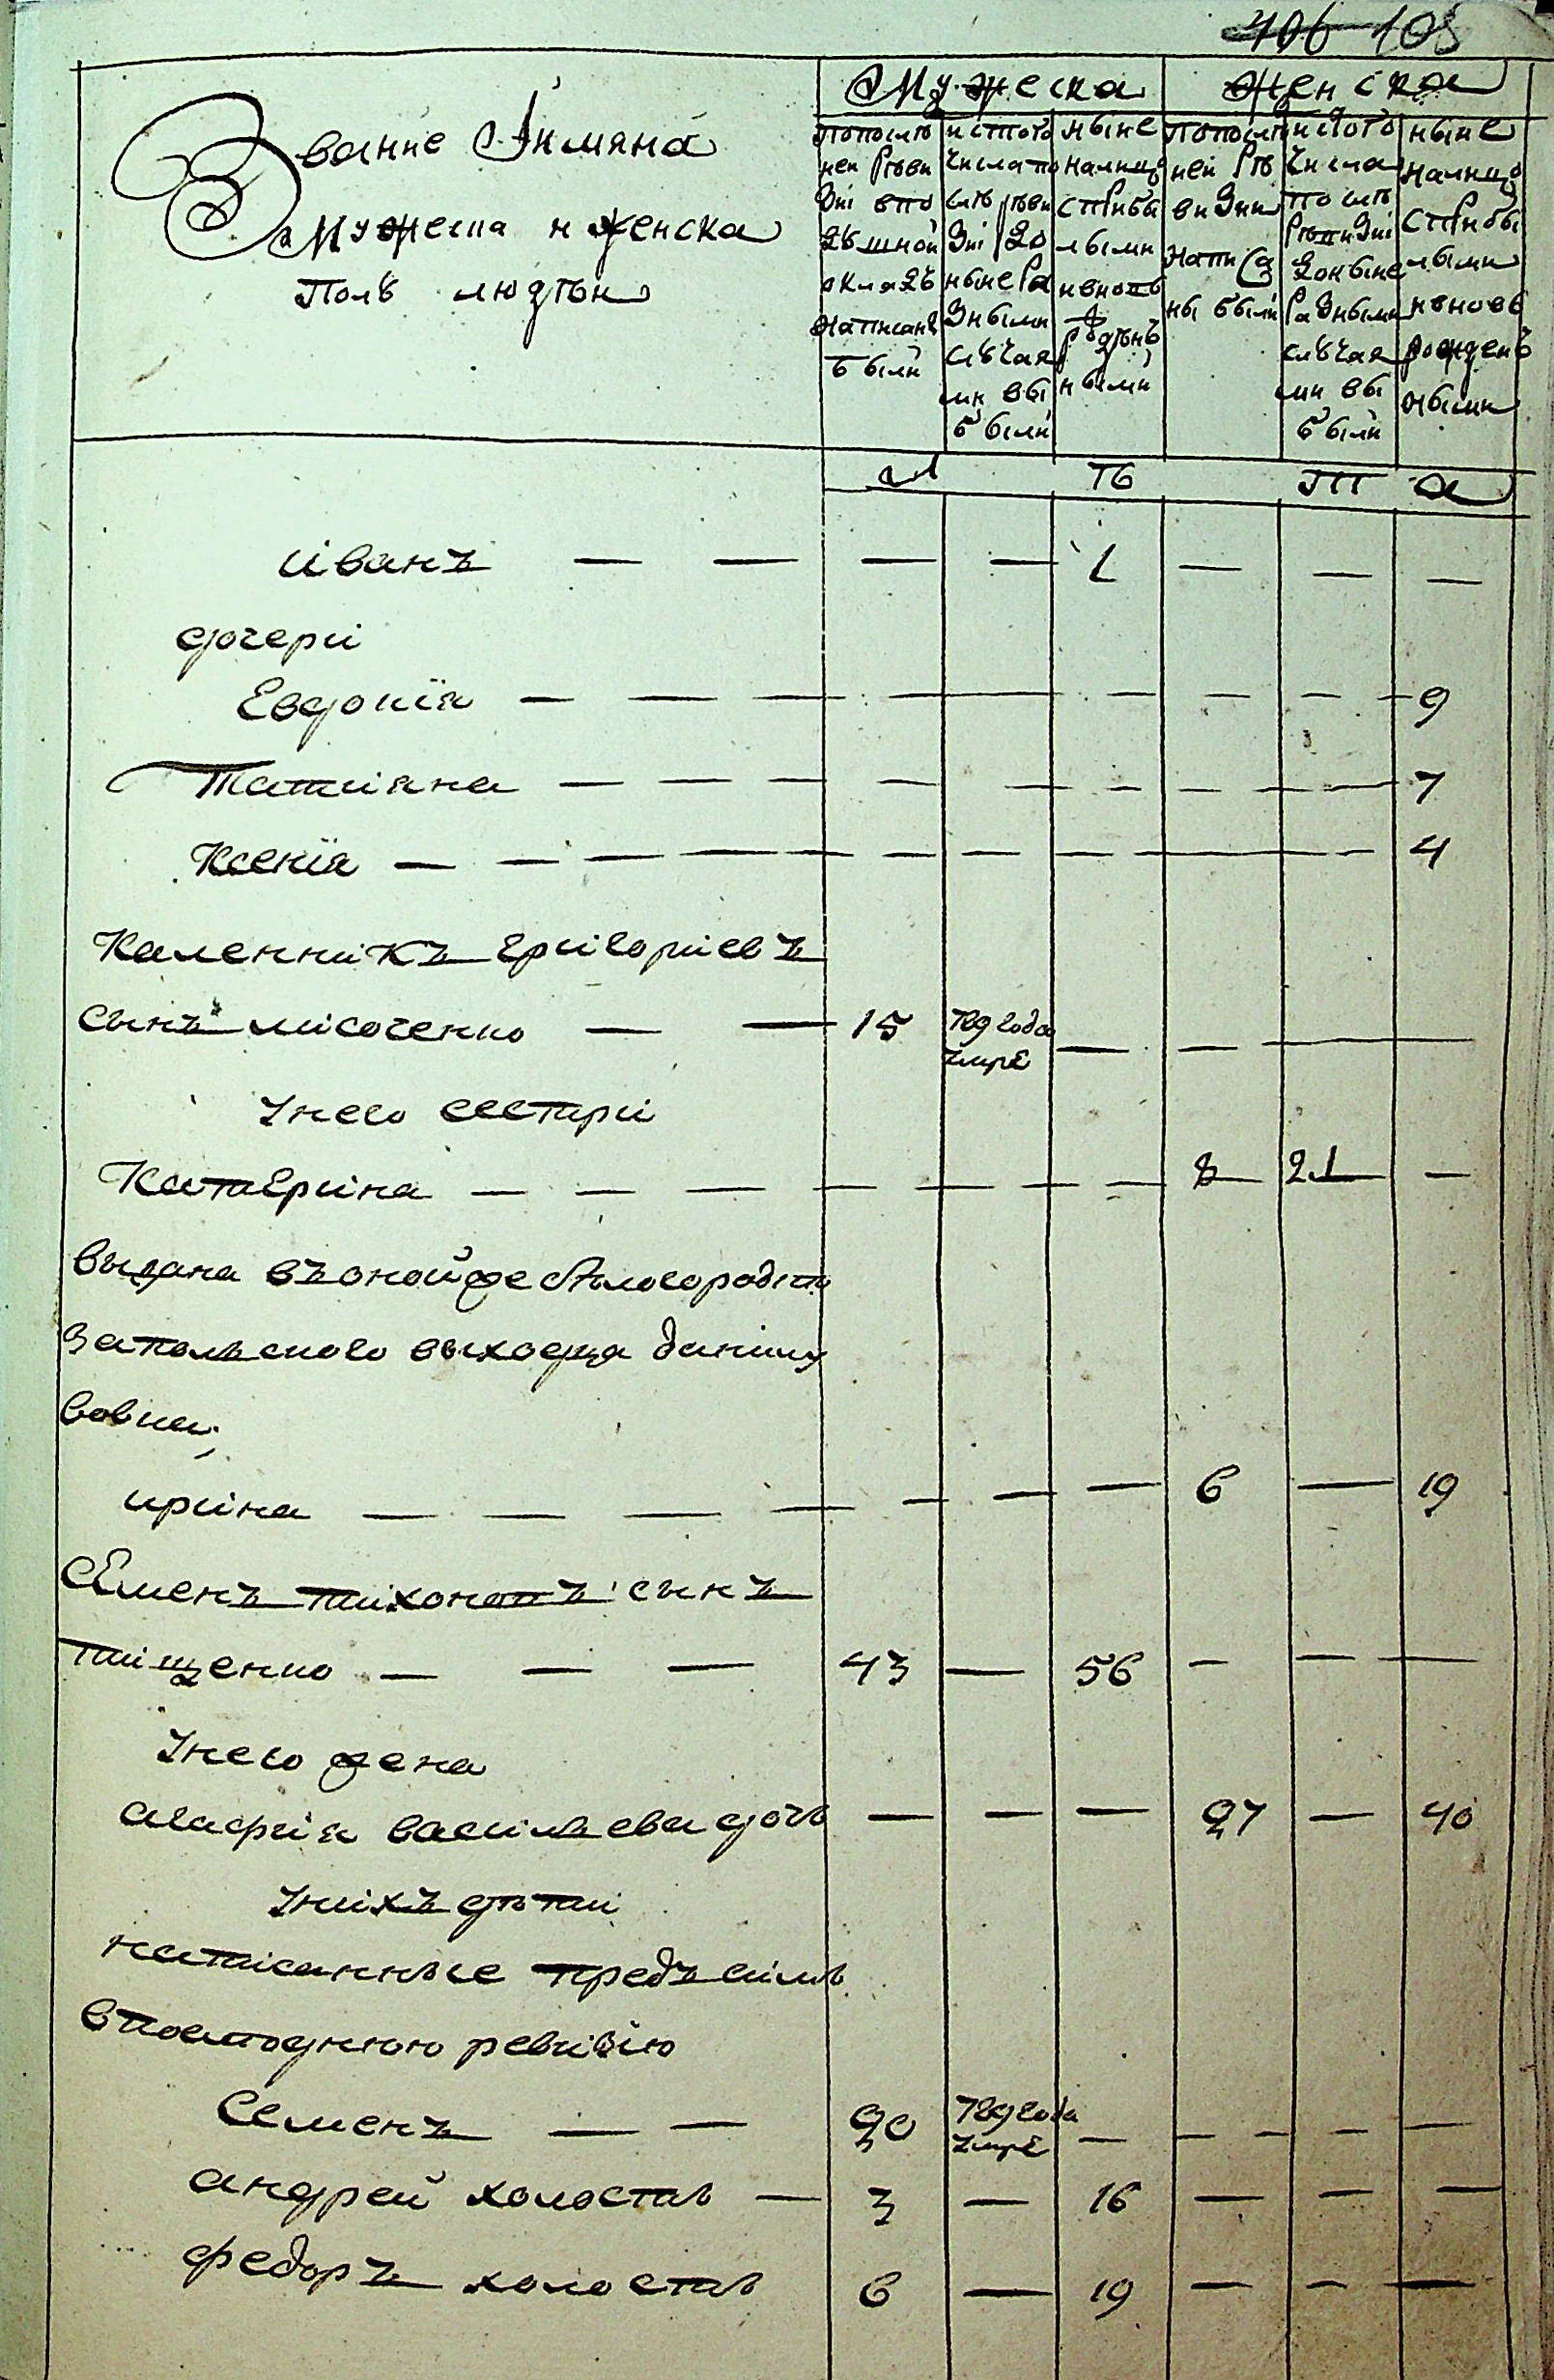 406 105
Мужеска Женска
Звание Имяна
Мужеска и женска
Полѣ людѣи
Попослѣ
ней Рѣви
Зиі впо
дѣшной
окладъ
Написанѣ
были
истого
числа по
слѣ рѣви
Зиі до
ныне Ра
Зными
слѣчая
ми вы
были
ныне
налицо
сприбы
лыми
ивновь
рожденѣ
ными
Попослѣ
ней Рѣ
визии
Написа
ны были
истого
числа
послѣ
Рѣвизиі
доныне
Разными
слѣчая
ми вы
были
ныне
налицо
сприбы
лыми
ивновь
рожденѣ
ными
л ѣ т а
иванъ — — — — 1 — — —
дочери
Евдокїя — — — — — — — — 9
Татиѧна — — — — — — — — 7
Ксенїя — — — — — — — — 4
Каленникъ григориевъ
сынъ — — 15 789 года умре — — — —
унего сестри
Катерина — — — — — — 8 21 —
Выдана въоной же
заполского выходца данилу
вовка;
ирина — — — — — — — 6 — 19
Семенъ тихоновъ сынъ
тищенко — — — 43 — 56 — — —
унего жена
агафия василева дочь — — — 27 — 40
унихъ дѣти
написанные предъ симъ
впоследнюю ревизию
Семенъ — — 20 789 года умре — — — — —
андрей холостъ — 3 — 16 — — —
федоръ холостъ 6 — 19 — — —